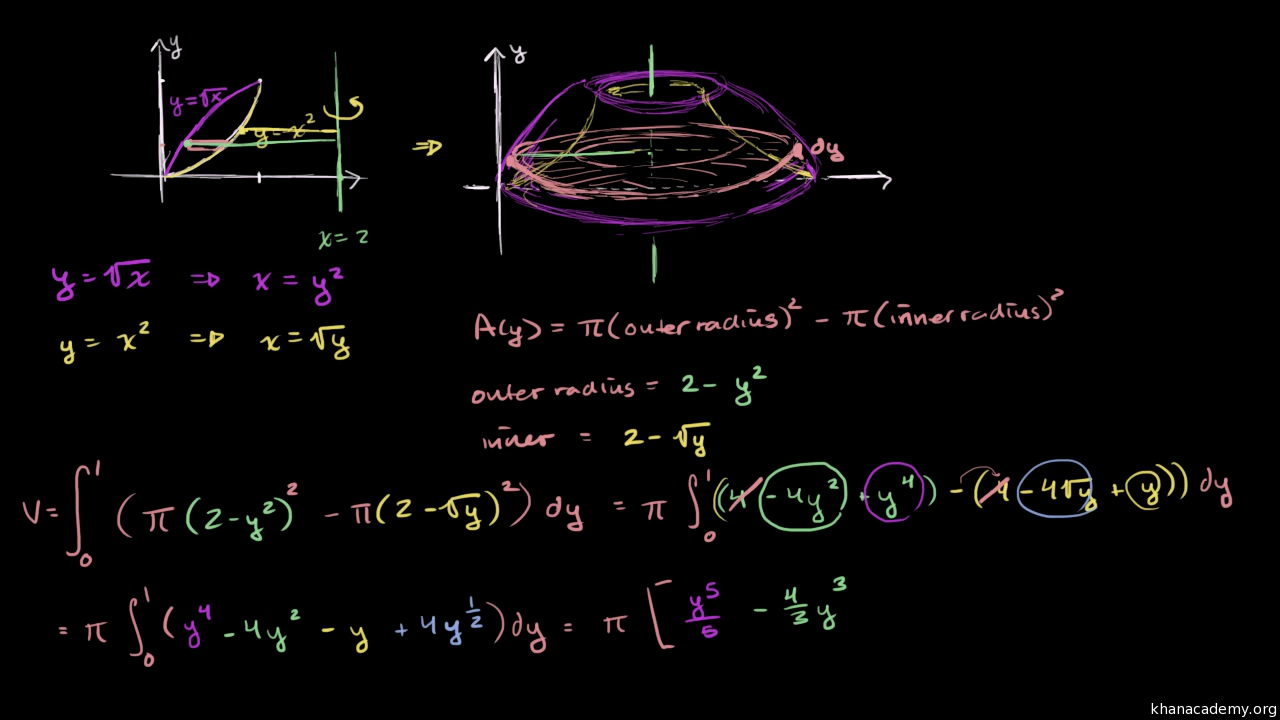 y
y = √x
y = x²
x = 2
⇒
y
dy
y = √x ⇒ x = y²
y = x² ⇒ x = √y
A(y) = π(outer radius)² − π(inner radius)²
outer radius = 2 − y²
inner = 2 − √y
V = ∫₀¹ (π(2 − y²)² − π(2 − √y)²) dy = π ∫₀¹ ((4 − 4y² + y⁴) − (4 − 4√y + y)) dy
= π ∫₀¹ (y⁴ − 4y² − y + 4y^(1/2)) dy = π [ y⁵/5 − 4/3 y³
khanacademy.org